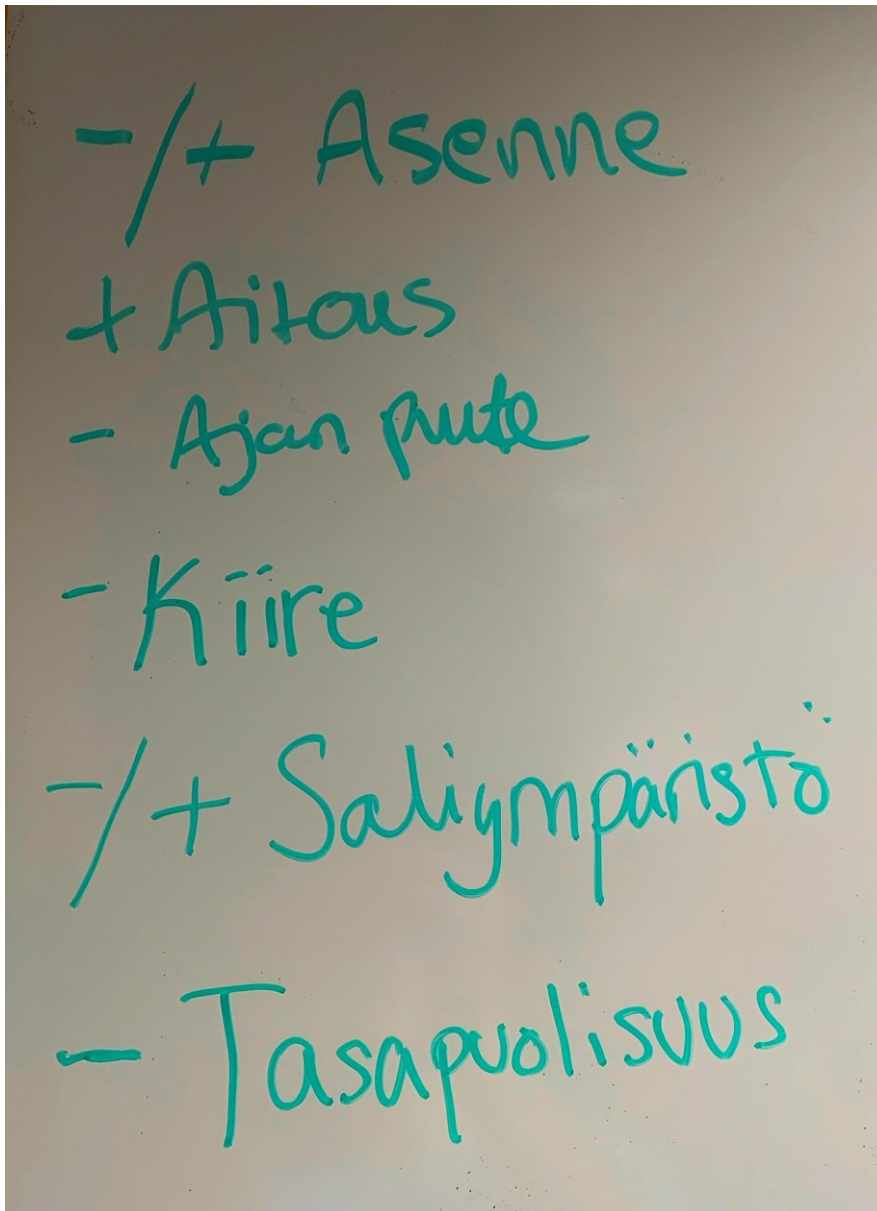 -/+ Asenne
+ Aitous
- Ajan puute
- Kiire
-/+ Saliympäristö
- Tasapuolisuus